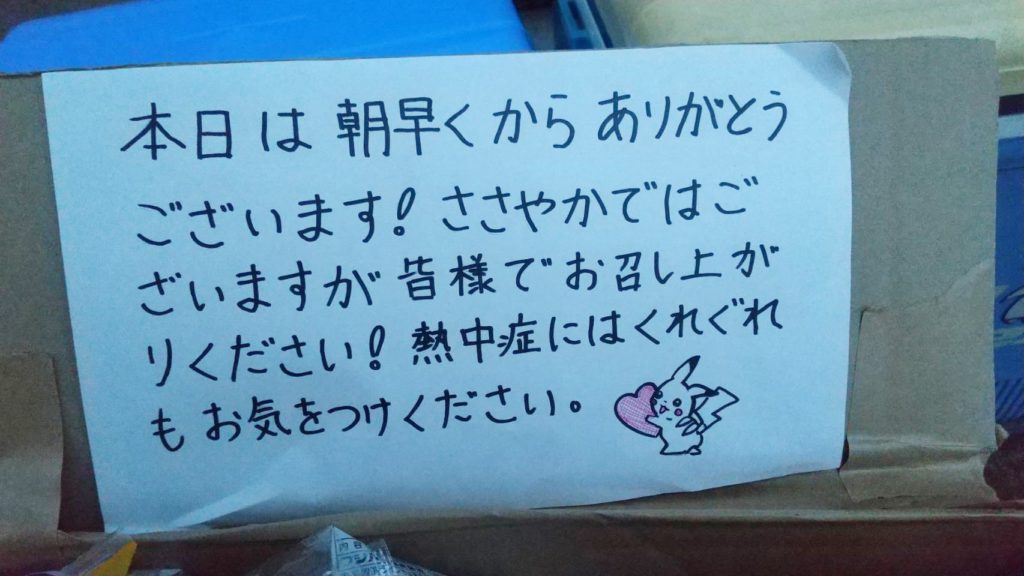 本日は朝早くからありがとう
ございます！ささやかではご
ざいますが皆様でお召し上が
りください！熱中症にはくれぐれ
もお気をつけください。